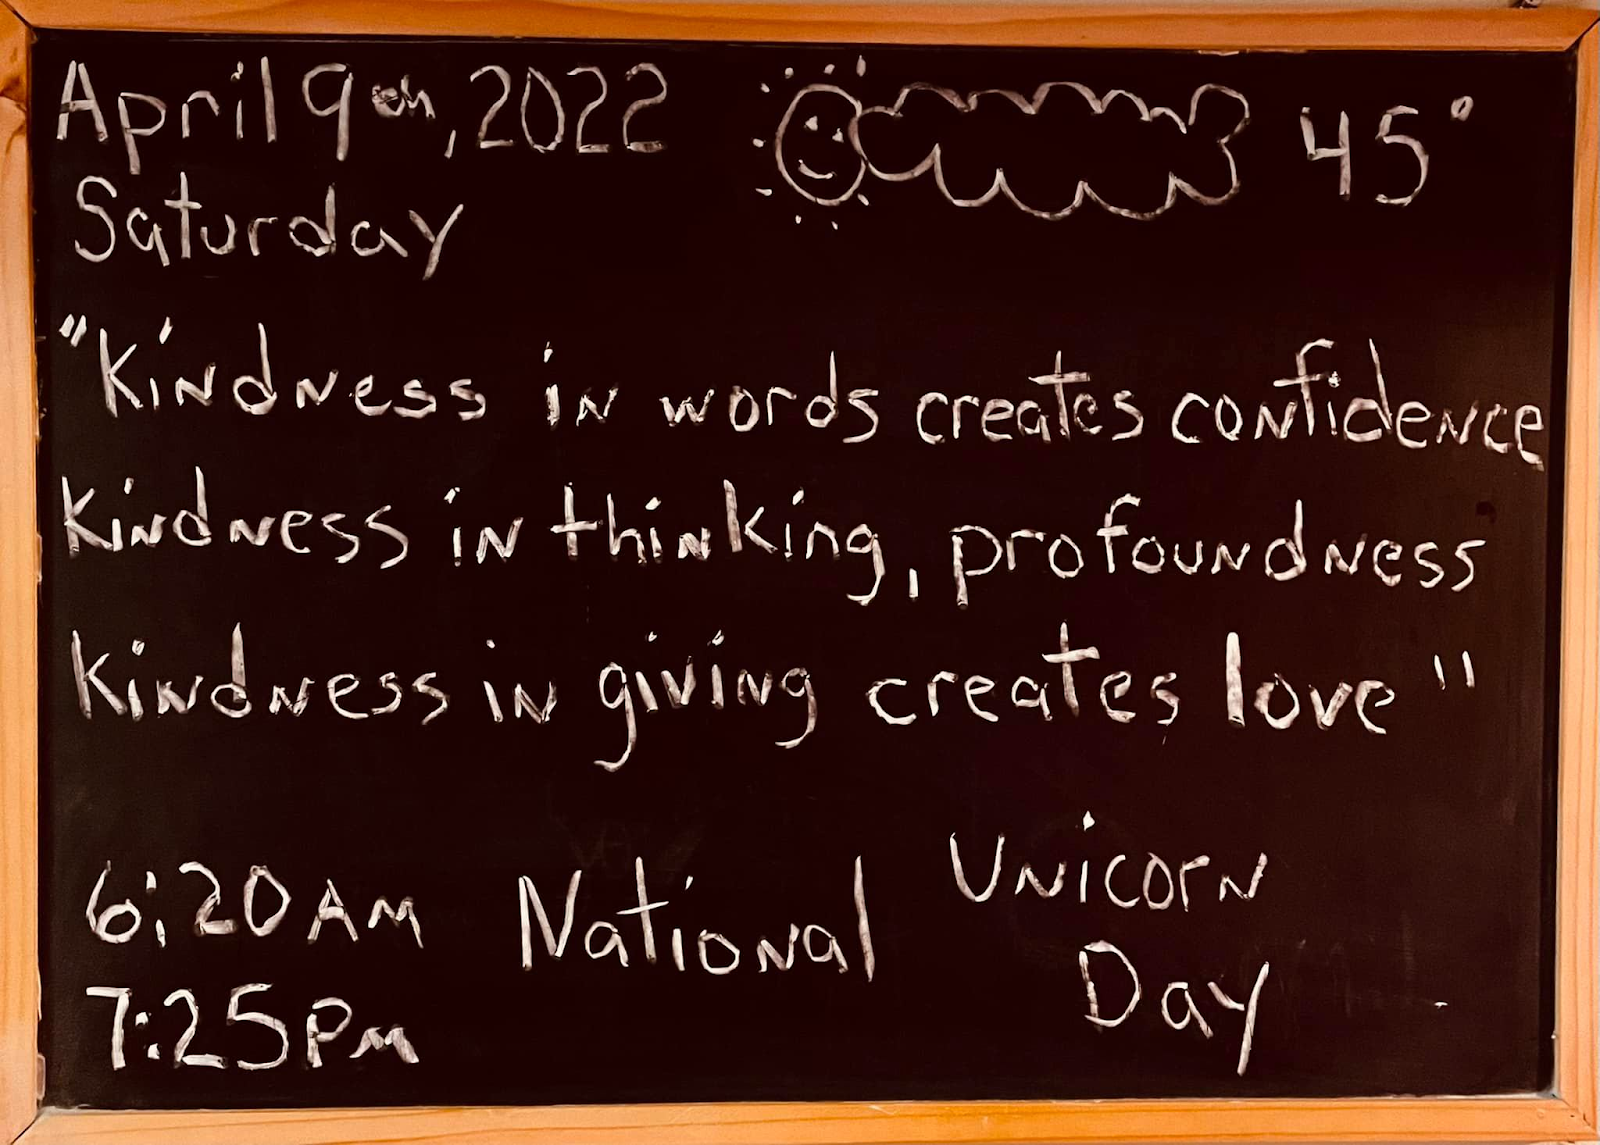 April 9th, 2022
45°
Saturday
"Kindness in words creates confidence
Kindness in thinking, profoundness
Kindness in giving creates love"
6:20 AM
7:25 PM
National Unicorn
Day